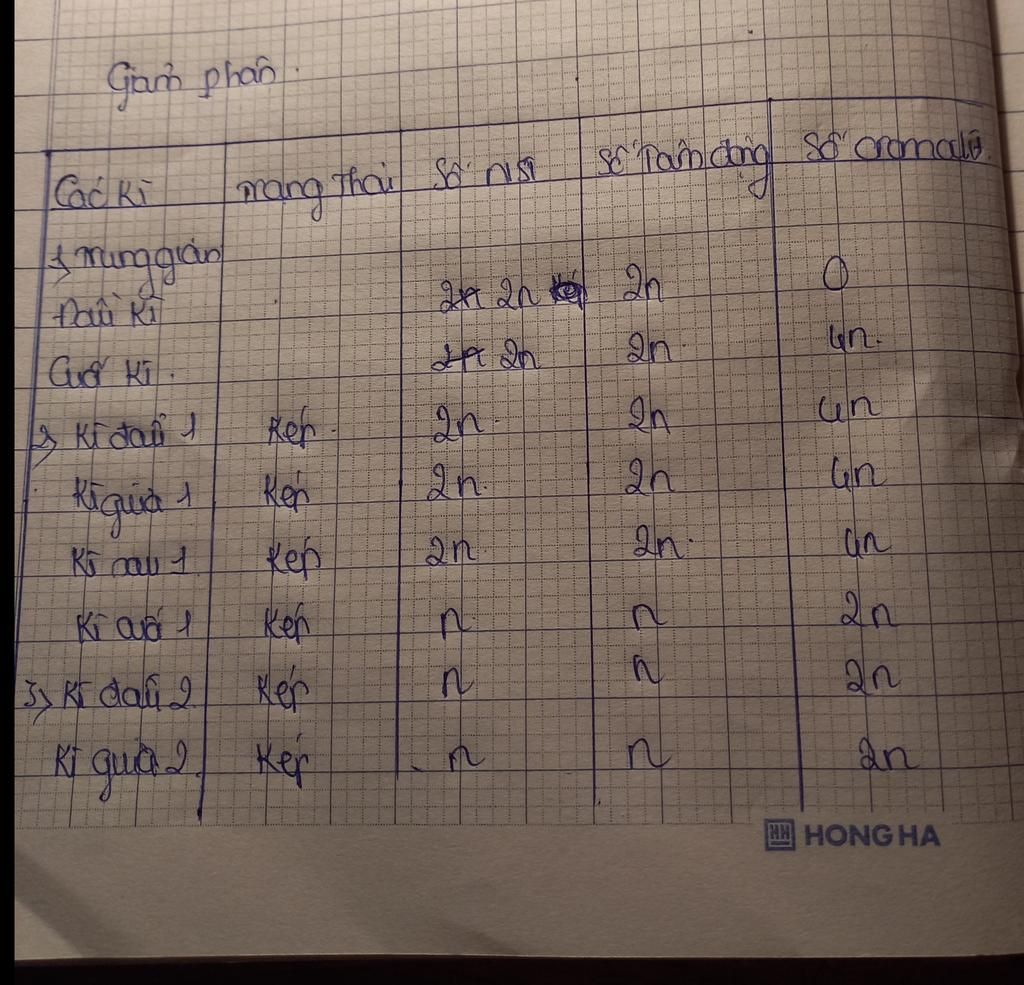 Giảm phân.
Các kì | Trạng thái | Số NST | Số Tâm động | Số cromatit
1, Trung gian
Đầu kì | 2n 2n | 2n | 0
Cuối kì. | 2n 2n | 2n | 4n.
2, Kì đầu 1 | Kép. | 2n. | 2n | 4n
Kì giữa 1 | Kép | 2n. | 2n | 4n
Kì sau 1 | Kép | 2n | 2n. | 4n
Kì cuối 1 | Kép | n | n | 2n
3, Kì đầu 2 | Kép | n | n | 2n
Kì giữa 2 | Kép | n | n | 2n
HH HONG HA